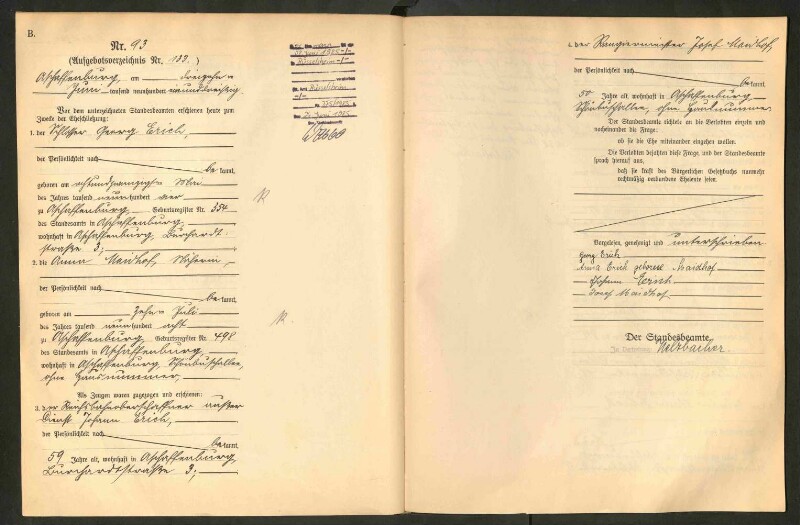 B.
Nr. 93
(Aufgebotsverzeichnis Nr. 133.)
Aschaffenburg, am dreizehn
Juni tausend neunhundert neununddreißig
Vor dem unterzeichneten Standesbeamten erschienen heute zum
Zwecke der Eheschließung:
1. der Schlosser Georg Erich,
der Persönlichkeit nach
bekannt,
geboren am achtundzwanzigsten Mai
des Jahres tausend neunhundert vier
zu Aschaffenburg, Geburtsregister Nr. 354
des Standesamts in Aschaffenburg,
wohnhaft in Aschaffenburg, Burchardt-
straße 3;
2. die Anna Maidhof, Näherin,
der Persönlichkeit nach
bekannt,
geboren am zehn Juli
des Jahres tausend neunhundert acht
zu Aschaffenburg, Geburtsregister Nr. 498
des Standesamts in Aschaffenburg,
wohnhaft in Aschaffenburg,
ohne Hausnummer,
Als Zeugen waren zugezogen und erschienen:
3. der Reichsbahnoberschaffner außer
Dienst Johann Erich,
der Persönlichkeit nach
bekannt,
59 Jahre alt, wohnhaft in Aschaffenburg,
Burchardtstraße 3;
Juni 1985
Rüsselsheim
Rüsselsheim
Juni 1985
4. der Rangiermeister Josef Maidhof,
der Persönlichkeit nach
bekannt,
50 Jahre alt, wohnhaft in Aschaffenburg
ohne Hausnummer
Der Standesbeamte richtete an die Verlobten einzeln und
nacheinander die Frage:
ob sie die Ehe miteinander eingehen wollen.
Die Verlobten bejahten diese Frage, und der Standesbeamte
sprach hierauf aus,
daß sie kraft des Bürgerlichen Gesetzbuchs nunmehr
rechtmäßig verbundene Eheleute seien.
Vorgelesen, genehmigt und unterschrieben
Georg Erich
Anna Erich geborene Maidhof
Johann Erich
Josef Maidhof
Der Standesbeamte
In Vertretung: Melzbacher.